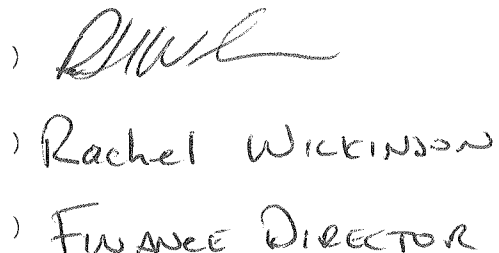 )
) Rachel WICKINSON
) FINANCE DIRECTOR